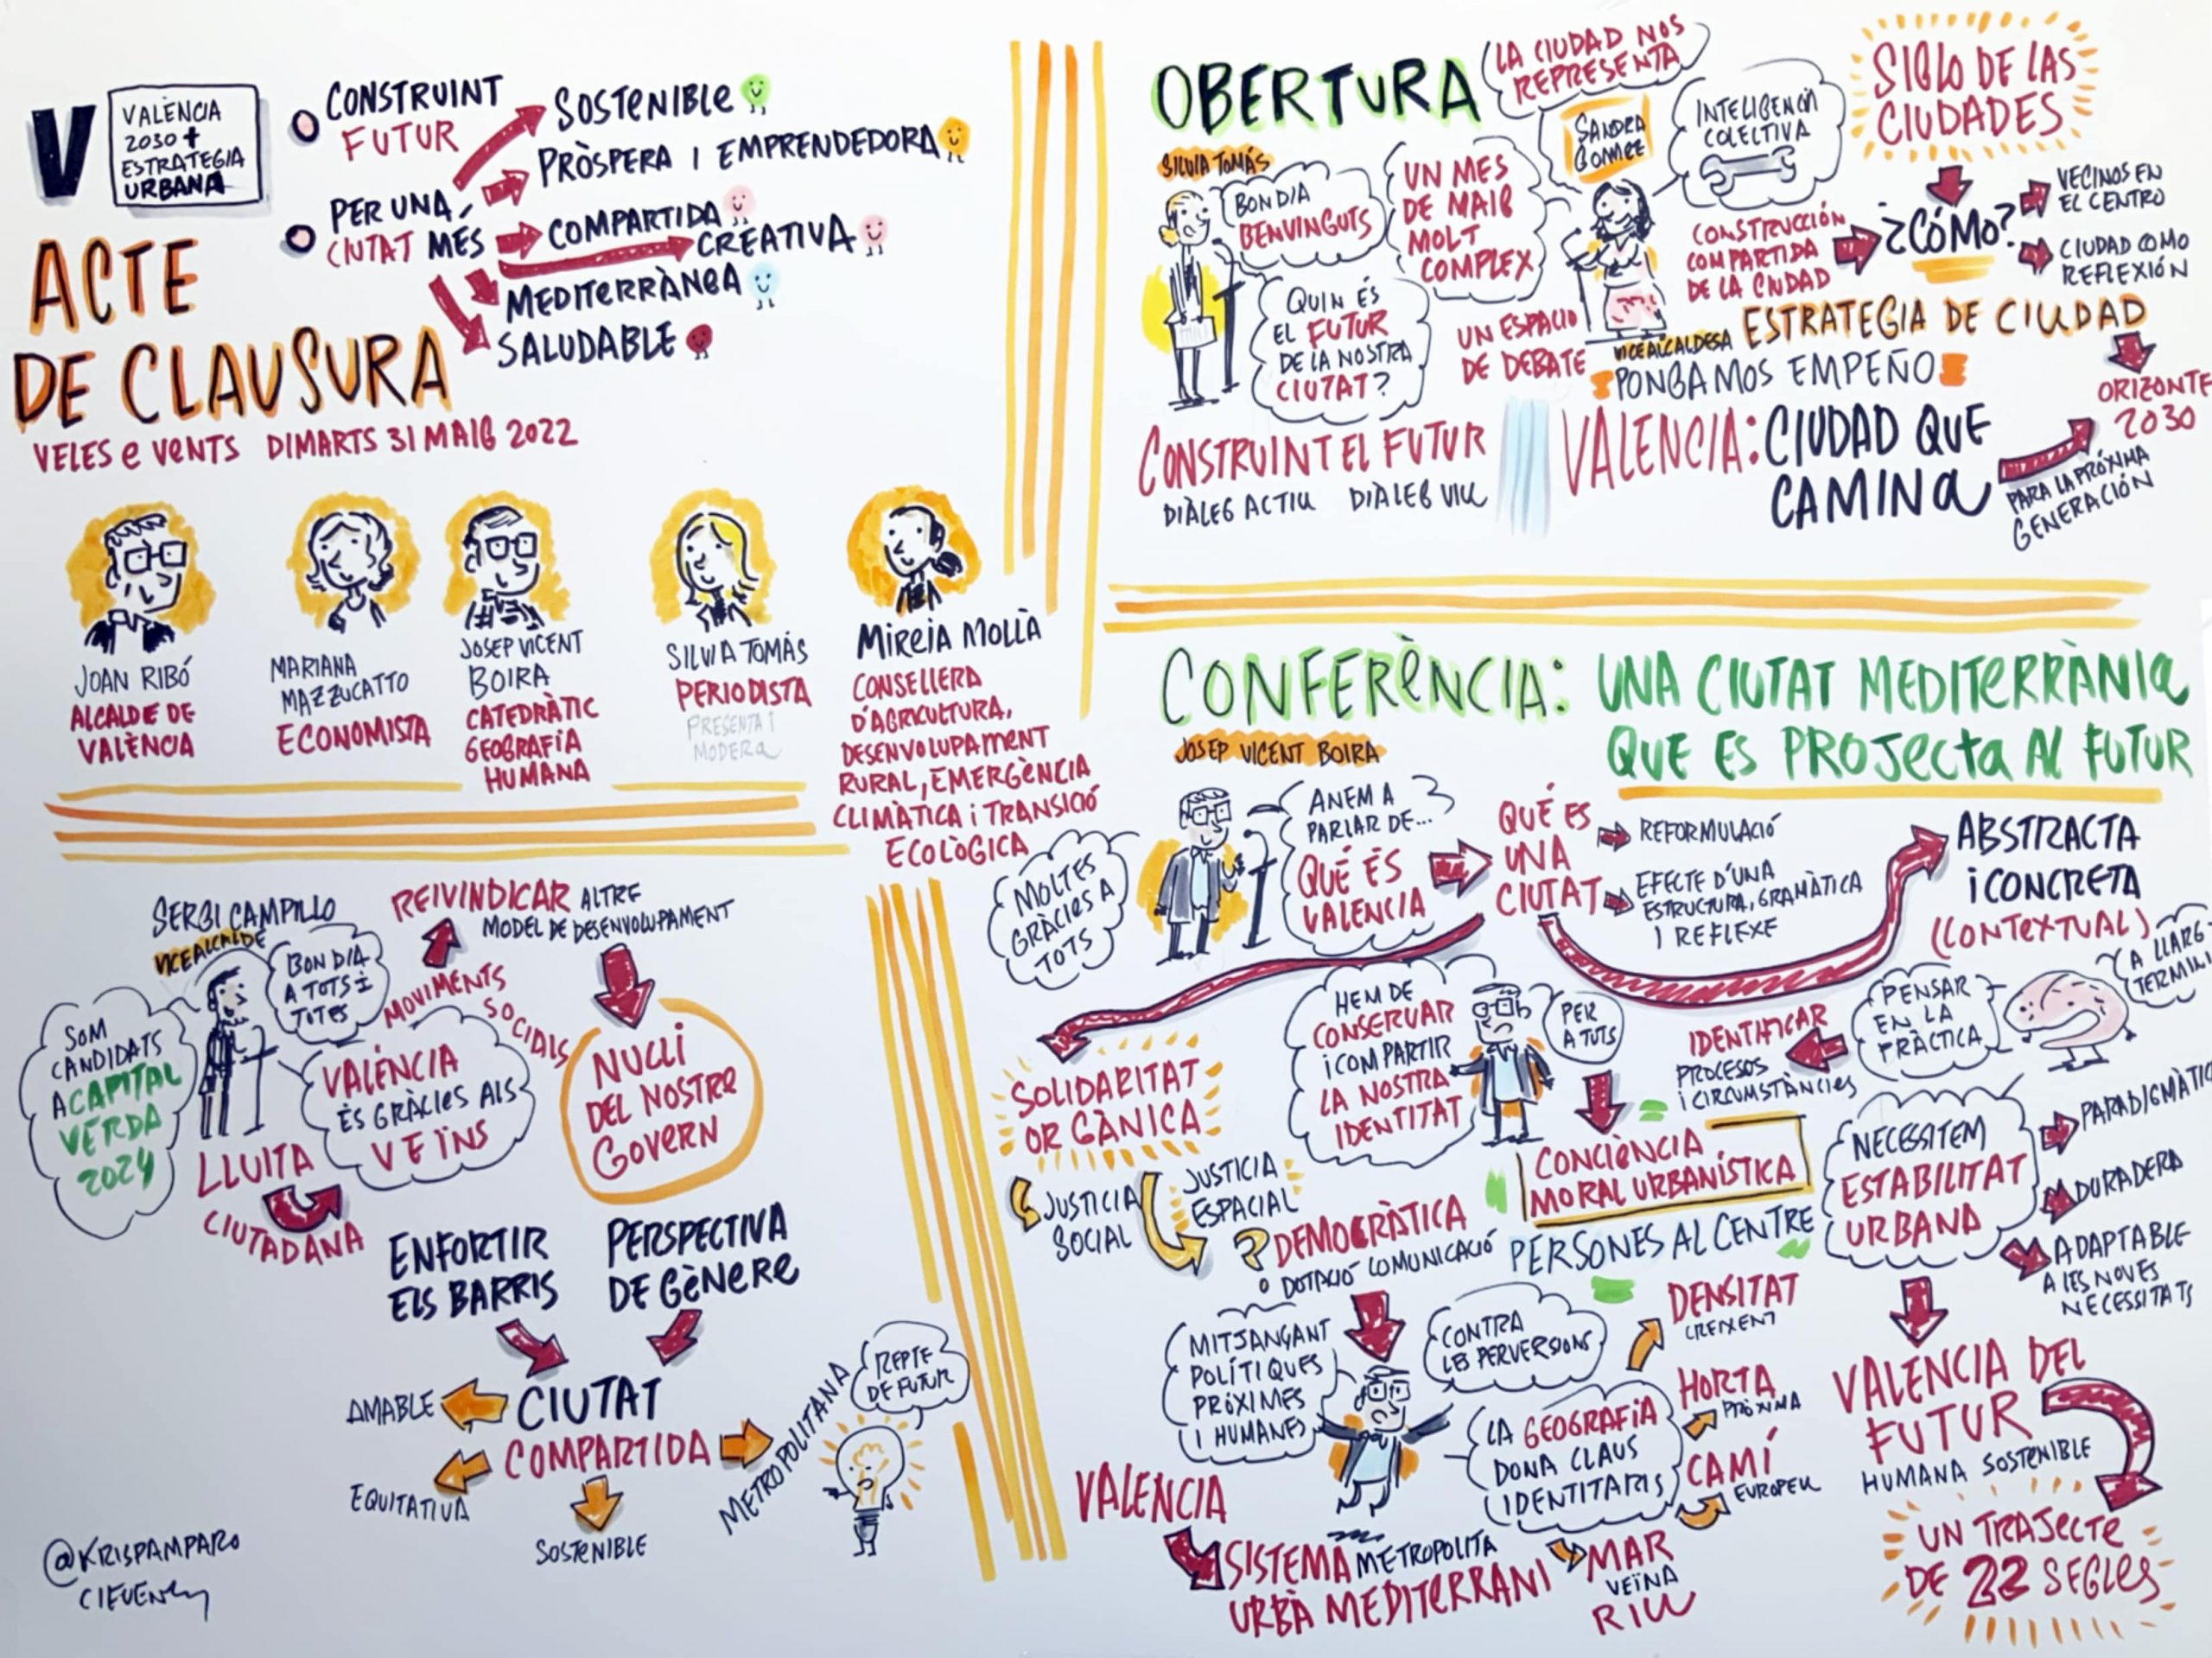 V
VALÈNCIA
2030 +
ESTRATEGIA
URBANA
CONSTRUINT
FUTUR
PER UNA
CIUTAT MÉS
SOSTENIBLE
PRÒSPERA I EMPRENDEDORA
COMPARTIDA
CREATIVA
MEDITERRÀNEA
SALUDABLE
ACTE
DE CLAUSURA
VELES e VENTS DIMARTS 31 MAIG 2022
JOAN RIBÓ
ALCALDE DE
VALÈNCIA
MARIANA
MAZZUCATTO
ECONOMISTA
JOSEP VICENT
BOIRA
CATEDRÀTIC
GEOGRAFIA
HUMANA
SILVIA TOMÁS
PERIODISTA
PRESENTA I
MODERA
MIREIA MOLLÀ
CONSELLERA
D'AGRICULTURA,
DESENVOLUPAMENT
RURAL, EMERGÈNCIA
CLIMÀTICA i TRANSICIÓ
ECOLÒGICA
OBERTURA
SILVIA TOMÁS
BON DIA
BENVINGUTS
UN MES
DE MAIG
MOLT
COMPLEX
QUIN ÉS
EL FUTUR
DE LA NOSTRA
CIUTAT?
CONSTRUINT EL FUTUR
DIÀLEG ACTIU DIÀLEG VIU
LA CIUDAD NOS
REPRESENTA
SANDRA
GOMEZ
INTELIGENCIA
COLECTIVA
UN ESPACIO
DE DEBATE
VICEALCALDESA
SIGLO DE LAS
CIUDADES
CONSTRUCCIÓN
COMPARTIDA
DE LA CIUDAD
¿CÓMO?
VECINOS EN
EL CENTRO
CIUDAD COMO
REFLEXIÓN
ESTRATEGIA DE CIUDAD
PONGAMOS EMPEÑO
ORIZONTE
2030
VALENCIA: CIUDAD QUE
CAMINA
PARA LA PRÓXIMA
GENERACIÓN
SERGI CAMPILLO
VICEALCALDE
BON DIA
A TOTS I
TOTES
SOM
CANDIDATS
A CAPITAL
VERDA
2024
REIVINDICAR ALTRE
MODEL DE DESENVOLUPAMENT
MOVIMENTS
SOCIALS
VALÈNCIA
ÉS GRÀCIES ALS
VEÏNS
LLUITA
CIUTADANA
NUCLI
DEL NOSTRE
GOVERN
ENFORTIR
ELS BARRIS
PERSPECTIVA
DE GÈNERE
CIUTAT
COMPARTIDA
AMABLE
EQUITATIVA
SOSTENIBLE
METROPOLITANA
REPTE
DE FUTUR
@KRISPAMPARO
CONFERÈNCIA: UNA CIUTAT MEDITERRÀNIA
QUE ES PROJECTA AL FUTUR
JOSEP VICENT BOIRA
MOLTES
GRÀCIES A
TOTS
ANEM A
PARLAR DE...
QUÉ ÉS
VALENCIA
QUÉ ES
UNA
CIUTAT
REFORMULACIÓ
EFECTE D'UNA
ESTRUCTURA, GRAMÀTICA
I REFLEXE
ABSTRACTA
i CONCRETA
(CONTEXTUAL)
A LLARG
TERMINI
PENSAR
EN LA
PRÀCTICA
IDENTIFICAR
PROCESOS
i CIRCUMSTÀNCIES
SOLIDARITAT
ORGÀNICA
JUSTICIA
SOCIAL
JUSTICIA
ESPACIAL
HEM DE
CONSERVAR
i COMPARTIR
LA NOSTRA
IDENTITAT
PER
A TOTS
CONCIÈNCIA
MORAL URBANÍSTICA
PERSONES AL CENTRE
DEMOCRÀTICA
DOTACIÓ COMUNICACIÓ
NECESSITEM
ESTABILITAT
URBANA
PARADIGMÀTIC
DURADERA
ADAPTABLE
A LES NOVES
NECESSITATS
MITJANÇANT
POLÍTIQUES
PRÓXIMES
I HUMANES
CONTRA
LES PERVERSIONS
LA GEOGRAFIA
DONA CLAUS
IDENTITARIS
DENSITAT
CREIXENT
HORTA
PRÒXIMA
CAMÍ
EUROPEU
MAR
VEÏNA
RIU
VALENCIA
SISTEMA METROPOLITA
URBÀ MEDITERRANI
VALENCIA DEL
FUTUR
HUMANA SOSTENIBLE
UN TRAJECTE
DE 22 SEGLES